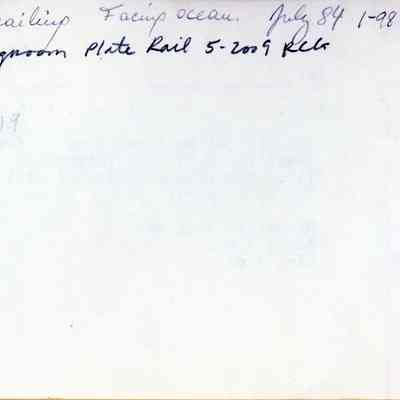 railing Facing ocean. July 84 1-98
ngroom Plate Rail 5-2009 RCK
19